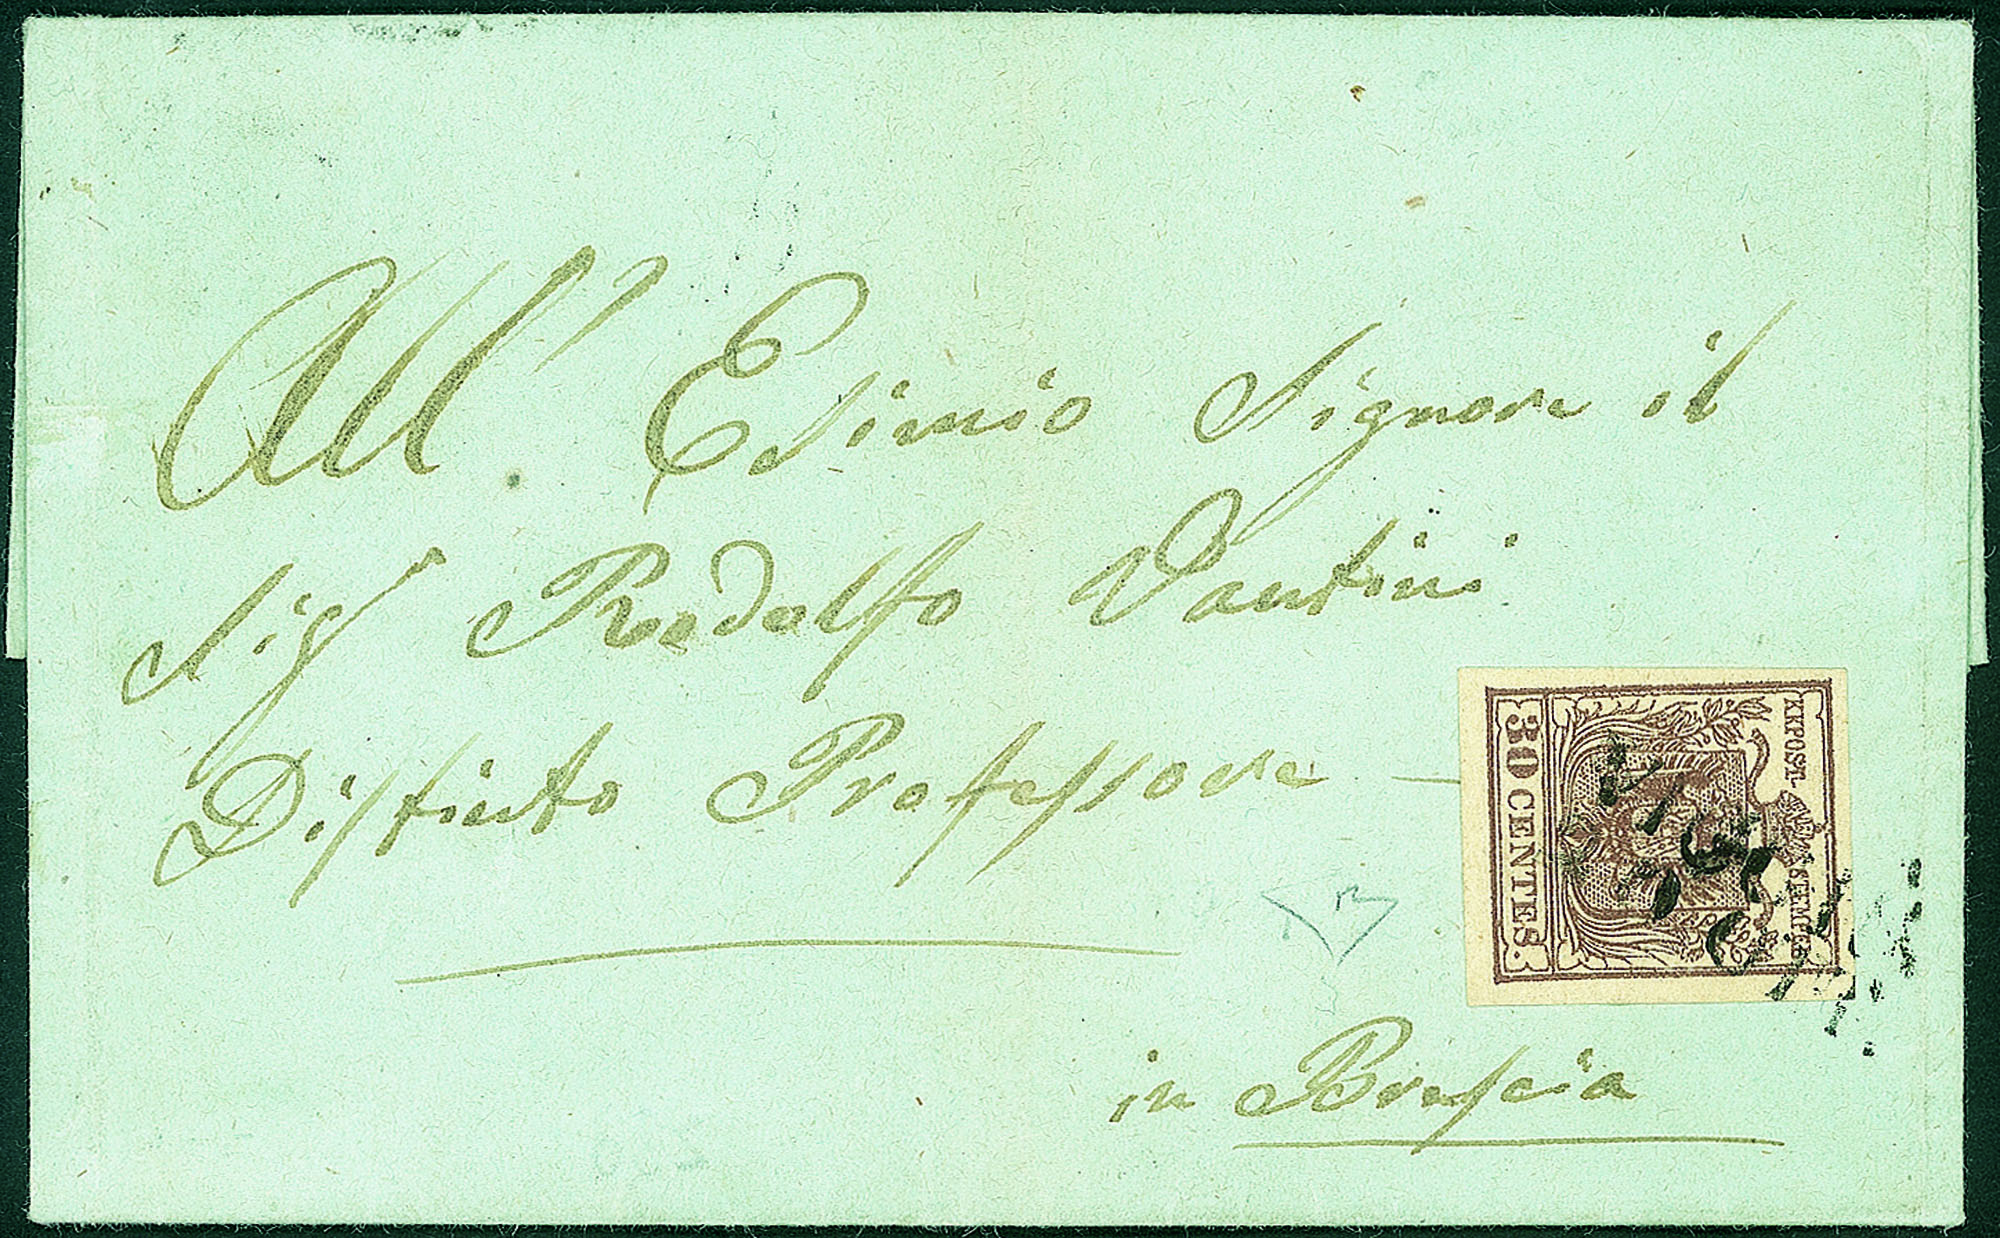 All' Esimio Signore il
Sigr Rodolfo Vantini
Distinto Professore —
in Brescia
KKPOST-STEMPEL
30 CENTES.